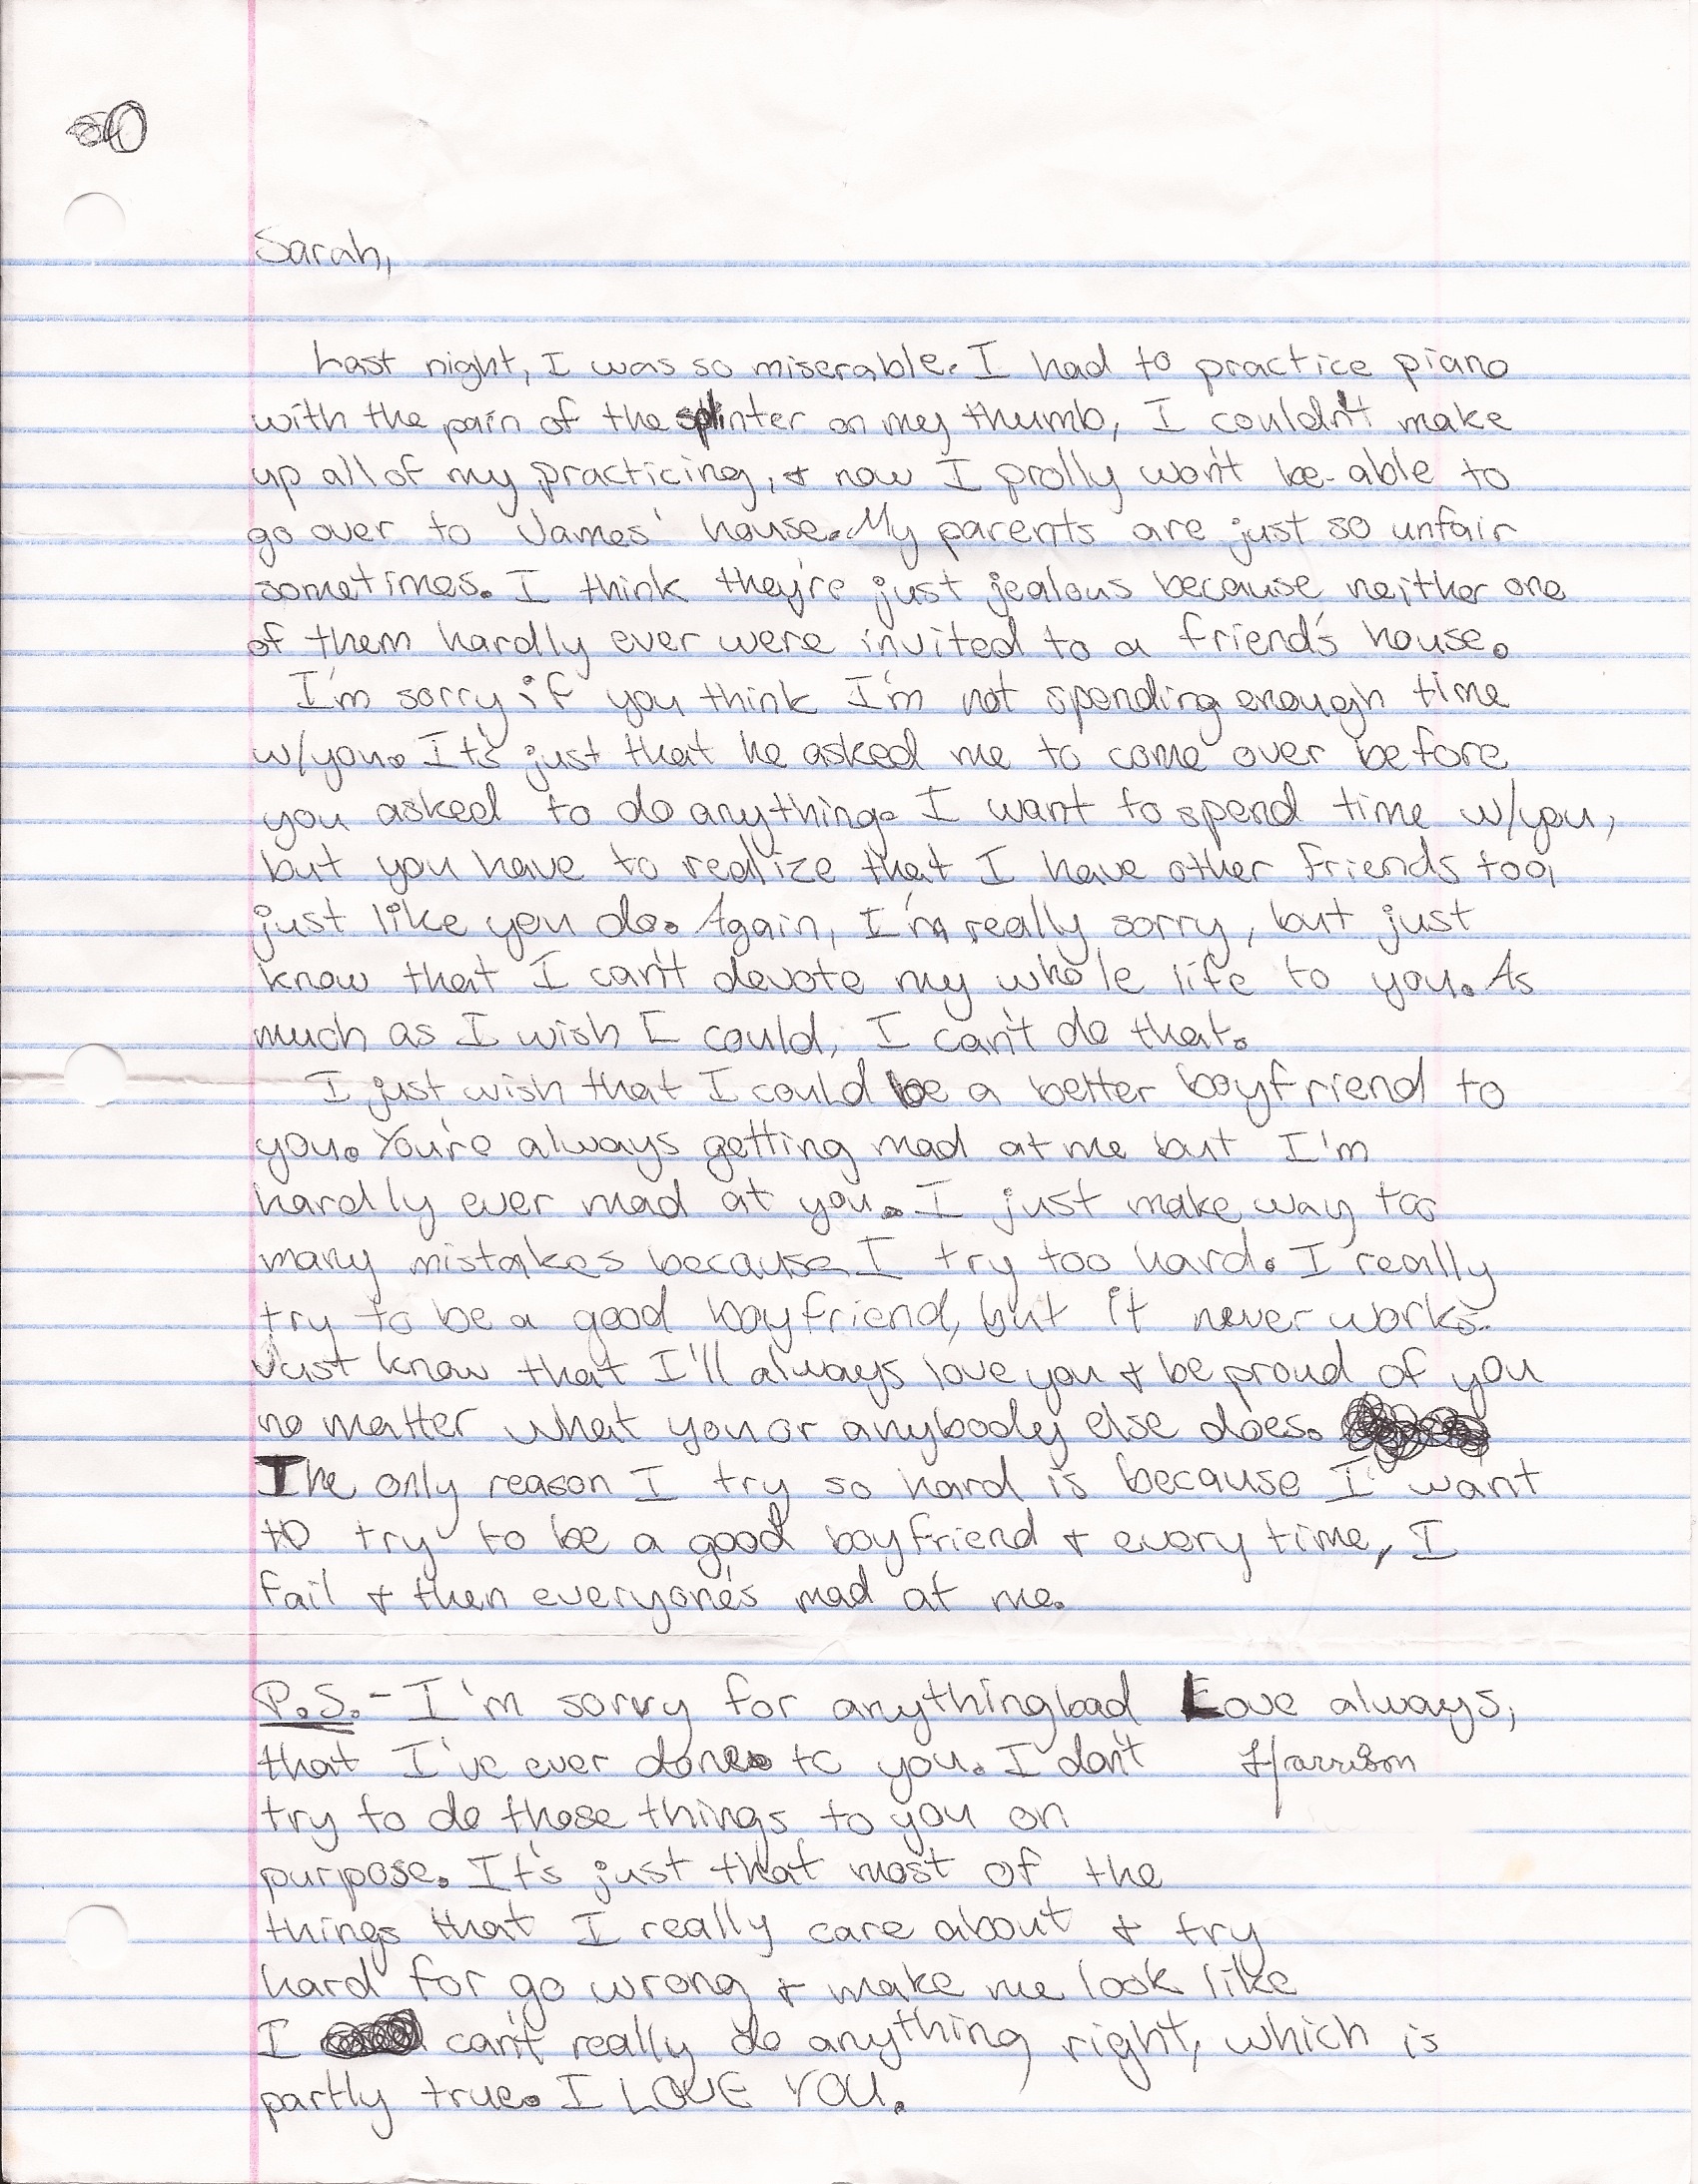 Sarah,
Last night, I was so miserable. I had to practice piano
with the pain of the splinter on my thumb, I couldn't make
up all of my practicing, & now I prolly won't be able to
go over to James' house. My parents are just so unfair
sometimes. I think they're just jealous because neither one
of them hardly ever were invited to a friend's house.
I'm sorry if you think I'm not spending enough time
w/you. It's just that he asked me to come over before
you asked to do anything. I want to spend time w/you,
but you have to realize that I have other friends too,
just like you do. Again, I'm really sorry, but just
know that I can't devote my whole life to you. As
much as I wish I could, I can't do that.
I just wish that I could be a better boyfriend to
you. You're always getting mad at me but I'm
hardly ever mad at you. I just make way too
many mistakes because I try too hard. I really
try to be a good boyfriend, but it never works.
Just know that I'll always love you & be proud of you
no matter what you or anybody else does.
The only reason I try so hard is because I want
to try to be a good boyfriend & every time, I
fail & then everyone's mad at me.
P.S. - I'm sorry for anything bad Love always,
that I've ever done to you. I don't Harrison
try to do those things to you on
purpose. It's just that most of the
things that I really care about & try
hard for go wrong & make me look like
I can't really do anything right, which is
partly true. I LOVE YOU.